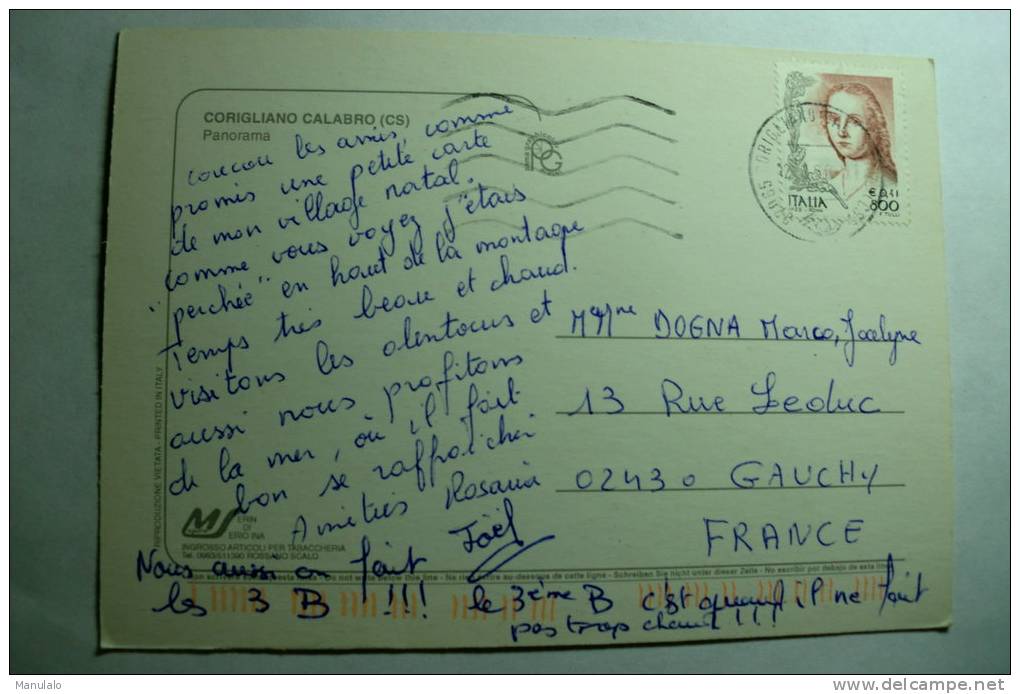 CORIGLIANO CALABRO (CS)
Panorama
coucou les amis, comme
promis une petite carte
de mon village natal.
comme vous voyez j'étais
"perchée" en haut de la montagne
Temps très beau et chaud.
visitons les alentours et
aussi nous profitons
de la mer, où il fait
bon se raffraichir
Amitiés Rosaria
Joël
Nous aussi on fait
les 3 B !!! le 3ème B c'est quand il ne fait
pas trop chaud !!!
ITALIA
€ 0,41
800
Mr Mme DOGNA Marco, Jocelyne
13 Rue Leduc
02430 GAUCHY
FRANCE
RIPRODUZIONE VIETATA - PRINTED IN ITALY
MS
ERIN
DI
ERIO INA
INGROSSO ARTICOLI PER TABACCHERIA
Tel. 0983/511390 ROSSANO SCALO
Do not write below this line - Ne rien écrire au-dessous de cette ligne - Schreiben Sie nicht unter dieser Zeile - No escribir por debajo de esta línea
Manulalo
www.delcampe.net